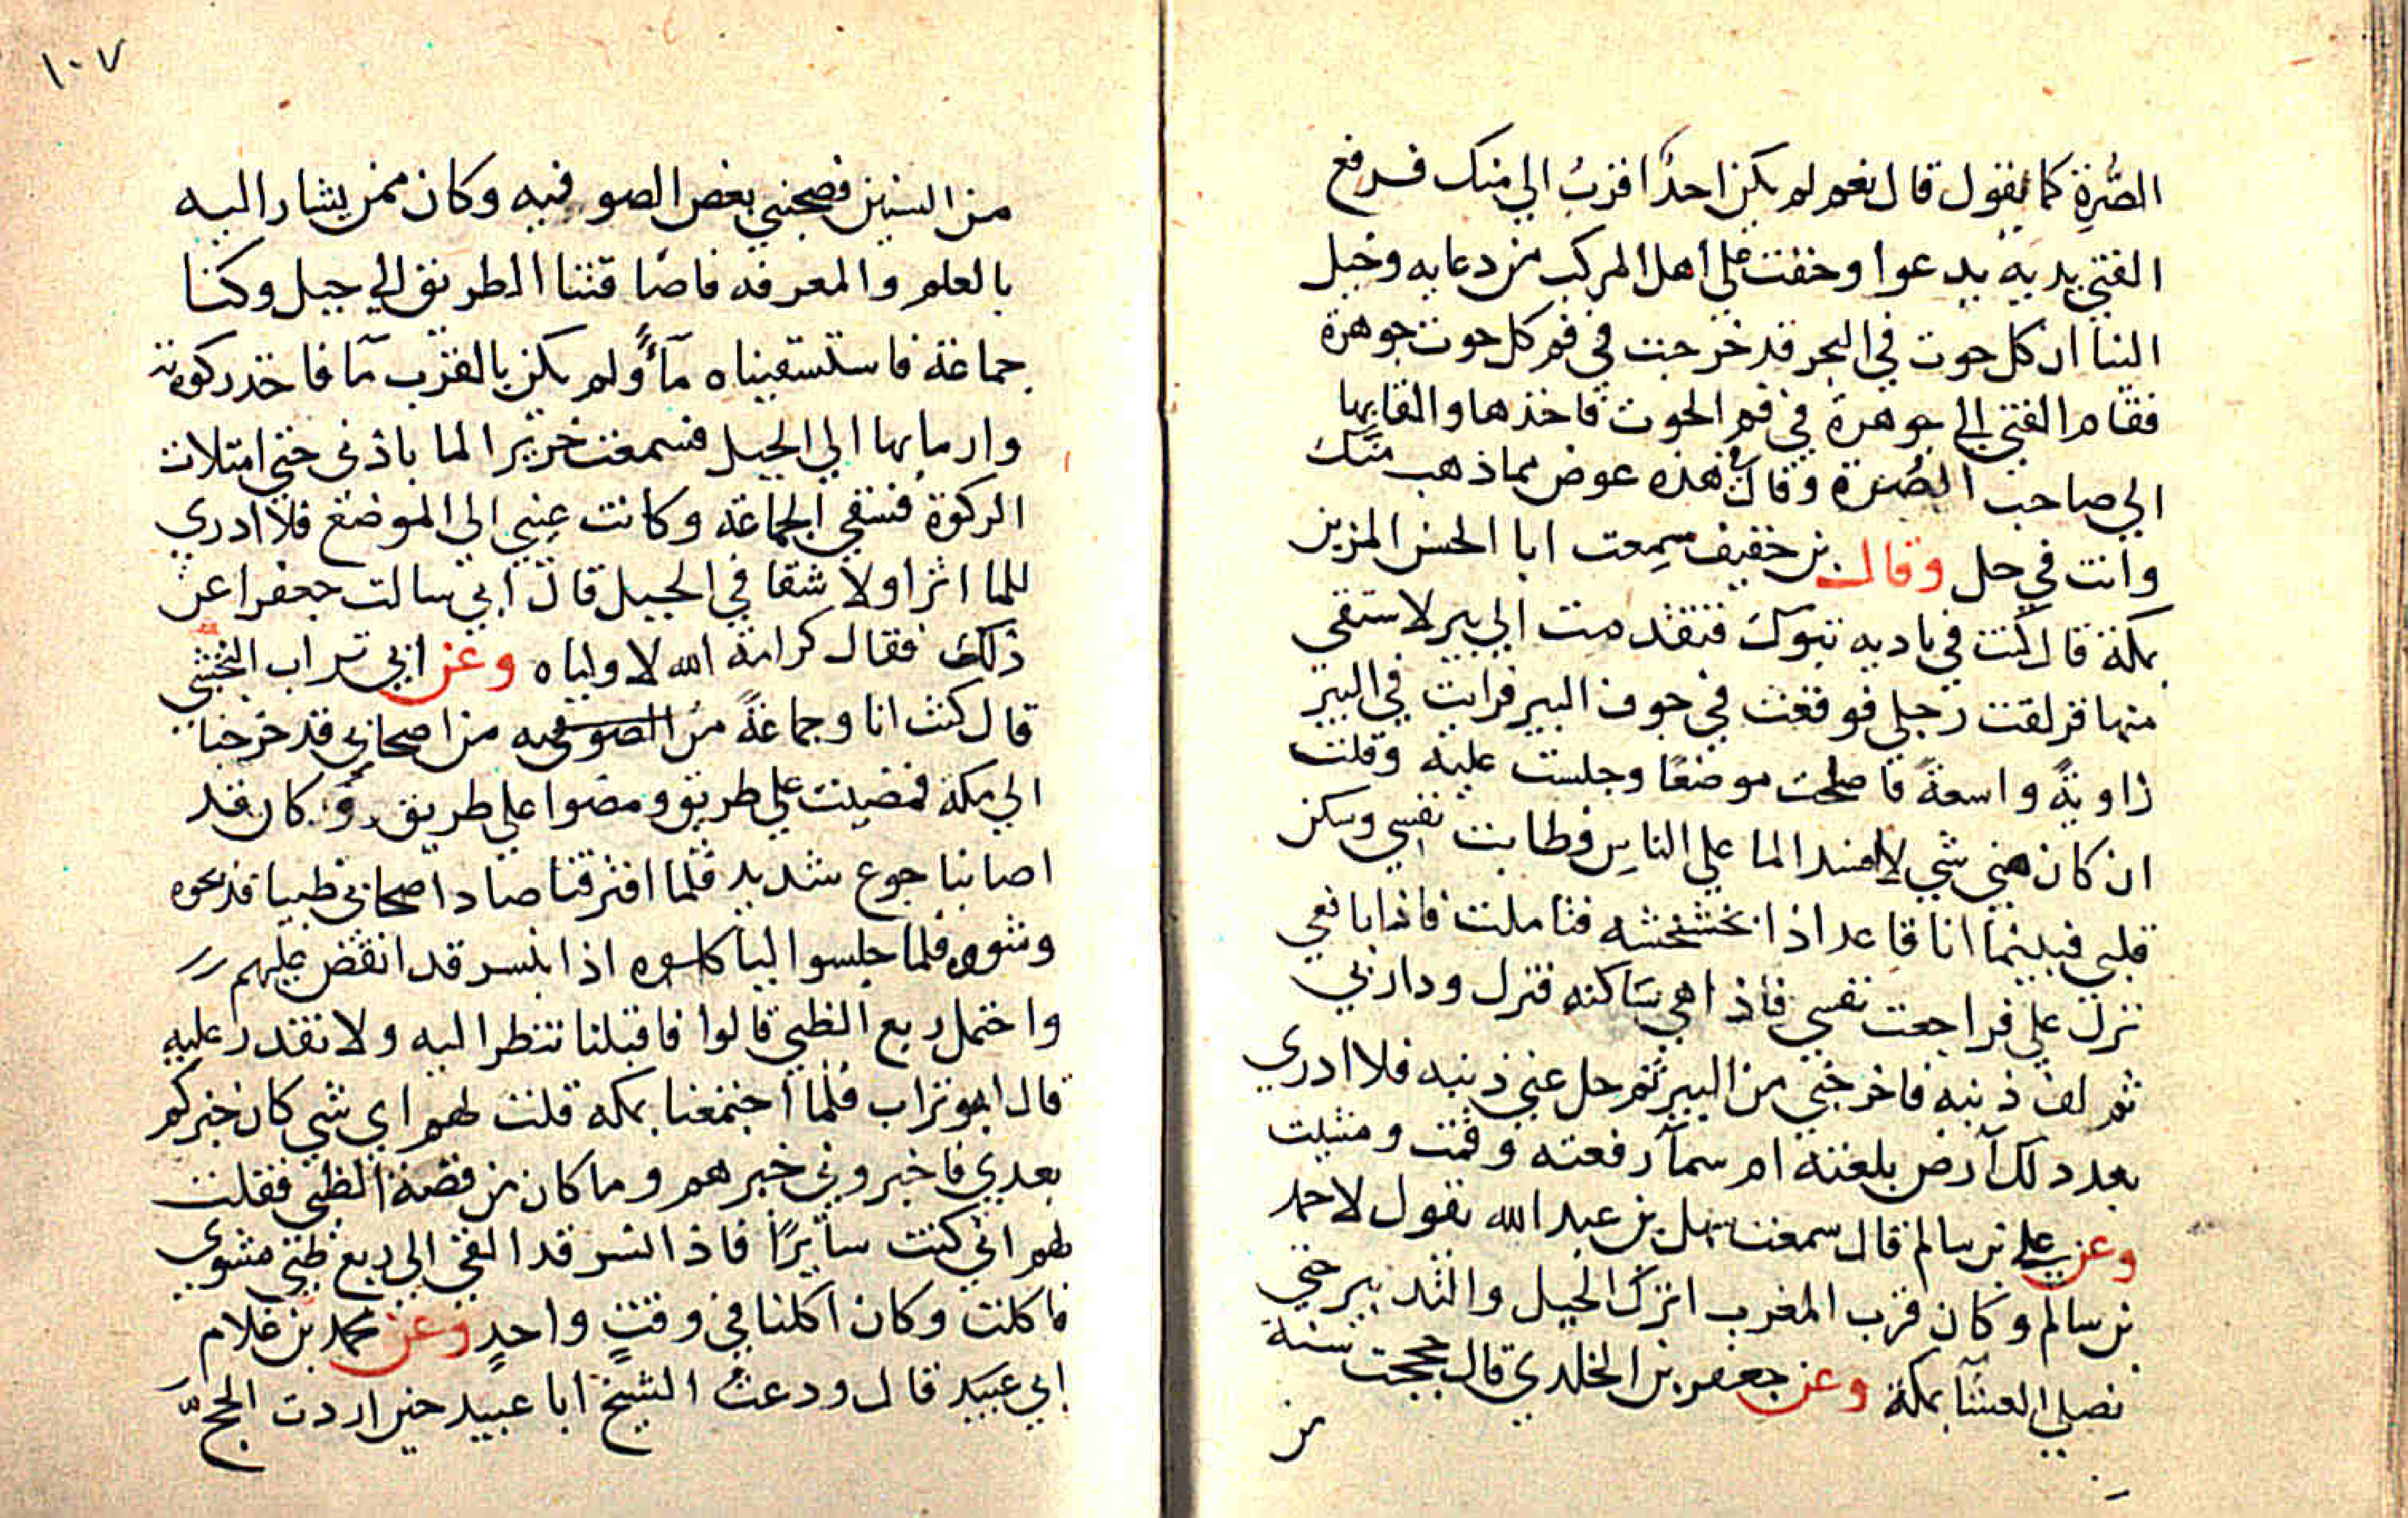 الصُّرةِ كما يقول قال نعم لم يكن احدٌ اقربُ الي منك فرفع
الفتي يديه يدعوا وخفت علي اهل المركب من دعايه وخيل
الينا ان كل حوت في البحر قد خرجت في فم كل حوت جوهرة
فقام الفتي الي جوهرة في فم الحوت فاخذها والقا بها
الي صاحب الصُرة وقال هذه عوض مما ذهب منك
وانت في حل وقال بن خفيف سمعت ابا الحسن المزين
بمكة قال كنت في باديه تبوك فتقدمت الي بير لاستقي
منها فزلقت رجلي فوقعت في جوف البير فرايت في البير
زاويةً واسعةً فاصلحت موضعًا وجلست عليه وقلت
ان كان مني شي لا افسد الما علي الناس وطابت نفسي وسكن
قلبي فبينما انا قاعد اذا بخشخشه فتاملت فاذا بافعي
تنزل علي فراجعت نفسي فاذا هي ساكنه فنزل ودار بي
ثم لف ذنبه فاخرجني من البير ثم حل عني ذنبه فلا ادري
بعد ذلك آرض بلعته ام سمآ رفعته وقمت ومشيت
وعن علي بن سالم قال سمعت سهل بن عبد الله يقول لاحمد
بن سالم وكان قرب المغرب اترك الحيل والتدبير حتي
نصلي العشا بمكة وعن جعفر بن الخلدي قال حججت سنة
من
١٠٧
من السنين فصحبني بعض الصوفيه وكان ممن يشار اليه
بالعلم والمعرفه فاضاقتنا الطريق الي جبل وكنا
جماعة فاستسقيناه مآءً ولم يكن بالقرب مآ فاخذ ركوته
وارما بها الي الجبل فسمعت خرير الما باذني حتي امتلات
الركوة فسقي الجماعة وكانت عيني الي الموضع فلا ادري
للما اثرا ولا شقا في الجبل قال ابي سالت جعفرا عن
ذلك فقال كرامة الله لاولياه وعن ابي تراب النخشي
قال كنت انا وجماعةً من الصوفيه من اصحابي قد خرجنا
الي مكة فمضيت علي طريق ومضوا علي طريق وكان قد
اصابنا جوع شديد فلما افترقنا صادا اصحابي ظبيا فذبحوه
وشووه فلما جلسوا لياكلوه اذا بنسر قد انقض عليهم
واحتمل ربع الظبي قالوا فاقبلنا ننظر اليه ولا نقدر عليه
قال ابو تراب فلما اجتمعنا بمكه قلت لهم اي شي كان خبركم
بعدي فاخبروني خبرهم وما كان من قصة الظبي فقلت
لهم اني كنت سايرًا فاذا النسر قد القي الي ربع ظبي مشوي
فاكلت وكان اكلنا في وقتٍ واحدٍ وعن محمد بن غلام
ابي عبيد قال ودعت الشيخ ابا عبيد حين اردت الحج